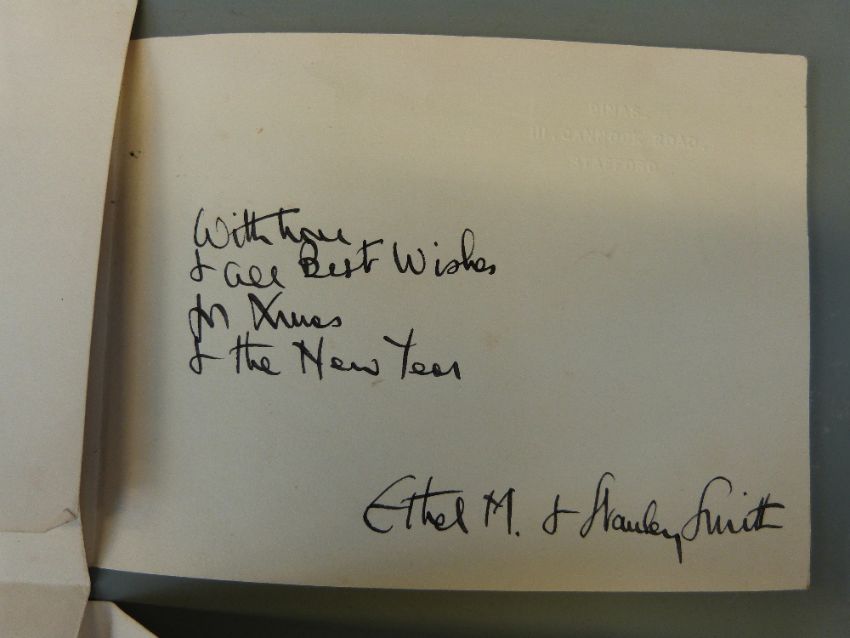 DINAS.
111, CANNOCK ROAD,
STAFFORD
With love
& all Best Wishes
for Xmas
& the New Year
Ethel M. & Stanley Smith